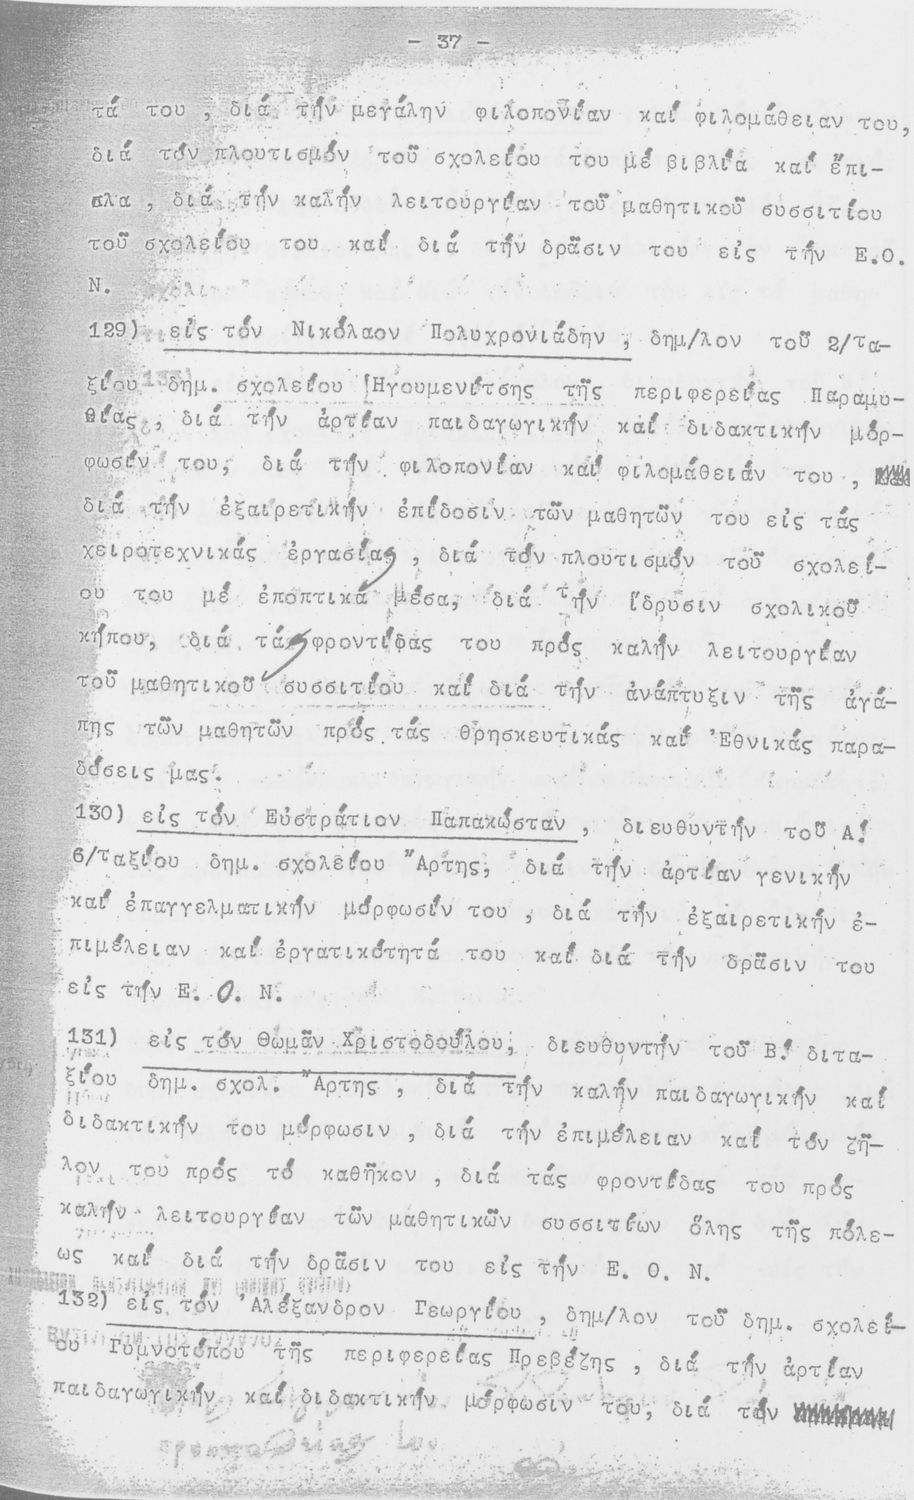 - 37 -
τά του , διά τήν μεγάλην φιλοπονίαν καί φιλομάθειαν του,
διά τόν πλουτισμόν τοῦ σχολείου του μέ βιβλία καί ἔπι-
πλα , διά τήν καλήν λειτουργίαν τοῦ μαθητικοῦ συσσιτίου
τοῦ σχολείου του καί διά τήν δρᾶσιν του εἰς τήν Ε.Ο.
Ν.
129) εἰς τόν Νικόλαον Πολυχρονιάδην , δημ/λον τοῦ 2/τα-
ξίου δημ. σχολείου Ἡγουμενίτσης τῆς περιφερείας Παραμυ-
θίας , διά τήν ἀρτίαν παιδαγωγικήν καί διδακτικήν μόρ-
φωσίν του, διά τήν φιλοπονίαν καί φιλομάθειάν του ,
διά τήν ἐξαιρετικήν ἐπίδοσιν τῶν μαθητῶν του εἰς τάς
χειροτεχνικάς ἐργασίας , διά τόν πλουτισμόν τοῦ σχολεί-
ου του μέ ἐποπτικά μέσα, διά τήν ἵδρυσιν σχολικοῦ
κήπου, διά τάς φροντίδας του πρός καλήν λειτουργίαν
τοῦ μαθητικοῦ συσσιτίου καί διά τήν ἀνάπτυξιν τῆς ἀγά-
πης τῶν μαθητῶν πρός τάς θρησκευτικάς καί Ἐθνικάς παρα-
δόσεις μας.
130) εἰς τόν Εὐστράτιον Παπακώσταν , διευθυντήν τοῦ Α!
6/ταξίου δημ. σχολείου Ἄρτης, διά τήν ἀρτίαν γενικήν
καί ἐπαγγελματικήν μόρφωσίν του , διά τήν ἐξαιρετικήν ἐ-
πιμέλειαν καί ἐργατικότητά του καί διά τήν δρᾶσιν του
εἰς τήν Ε. Ο. Ν.
131) εἰς τόν Θωμᾶν Χριστοδούλου, διευθυντήν τοῦ Β! διτα-
ξίου δημ. σχολ. Ἄρτης , διά τήν καλήν παιδαγωγικήν καί
διδακτικήν του μόρφωσιν , διά τήν ἐπιμέλειαν καί τόν ζῆ-
λον του πρός τό καθῆκον , διά τάς φροντίδας του πρός
καλήν λειτουργίαν τῶν μαθητικῶν συσσιτίων ὅλης τῆς πόλε-
ως καί διά τήν δρᾶσιν του εἰς τήν Ε. Ο. Ν.
132) εἰς τόν Ἀλέξανδρον Γεωργίου , δημ/λον τοῦ δημ. σχολεί-
ου Γυμνοτόπου τῆς περιφερείας Πρεβέζης , διά τήν ἀρτίαν
παιδαγωγικήν καί διδακτικήν μόρφωσίν του, διά τήν